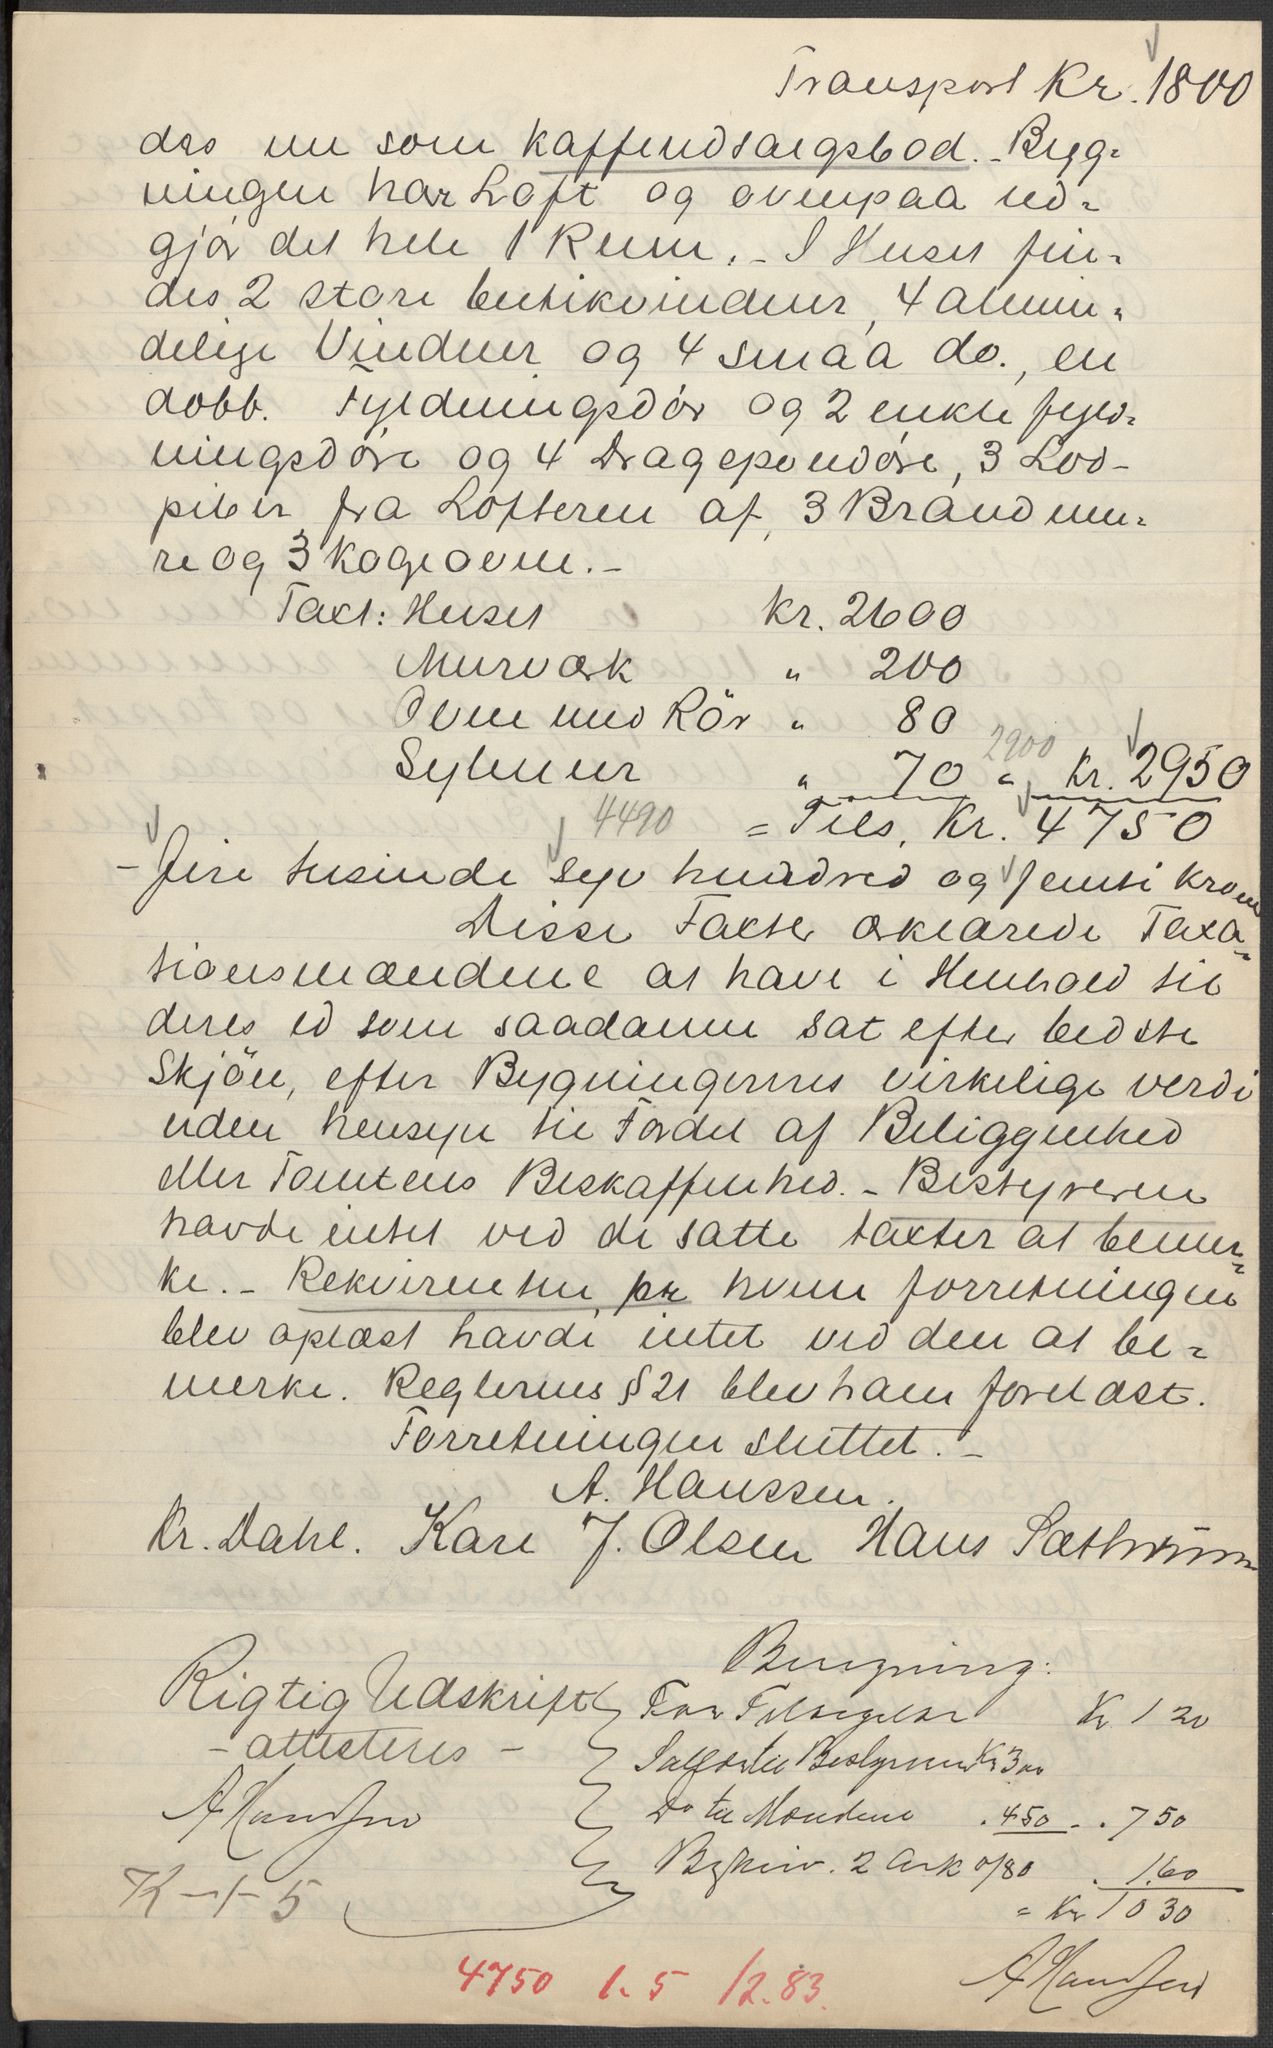 Transport Kr. 1800
des nu som Kaffeudsalgsbod. - Byg-
ningen har Loft og ovenpaa ud-
gjör det hele 1 Rum. - I Huset fin-
des 2 store butikvinduer, 4 almin-
delige Vinduer og 4 smaa do., en
dobb. Fyldningsdör og 2 enkle fyld-
ningsdöre og 4 Dragspondöre, 3 Lod-
piber fra Lofteren af, 3 Brandmu-
re og 3 Kogeovne. -
Taxt: Huset Kr. 2600
Murværk " 200
Ovne med Rör " 80
Sylmur " 70 " Kr. 2950
2900
4490 = Tils. Kr. 4750
- fire tusinde syv hundred og femti Kroner
Disse Taxter erklærede Taxa-
tionsmændene at have i Henhold til
deres ed som saadanne sat efter bedste
Skjön, efter Bygningernes virkelige verdi
uden hensyn til Fordel af Beliggenhed
eller Tomtens Beskaffenhed. - Bestyreren
havde intet ved de satte taxter at bemer-
ke. - Rekvirenten, for hvem forretningen
blev oplæst havde intet ved den at be-
merke. Reglernes § 21 blev ham forelæst.
Forretningen sluttet. -
A. Hanssen.
Kr. Dahl. Karl J. Olsen Hans Sæthrumm
Rigtig Udskrift
- attesteres -
A Hanssen
K-1-5
Beregning:
For Tilsigelse Kr 1 20
Salær til Bestyreren Kr 3 00
Do til Mændene . 450 . . 7 50
Beskriv. 2 Ark a/80 . 1.60
= Kr 10 30
A Hanssen
4750 1. 5 1/2.83.